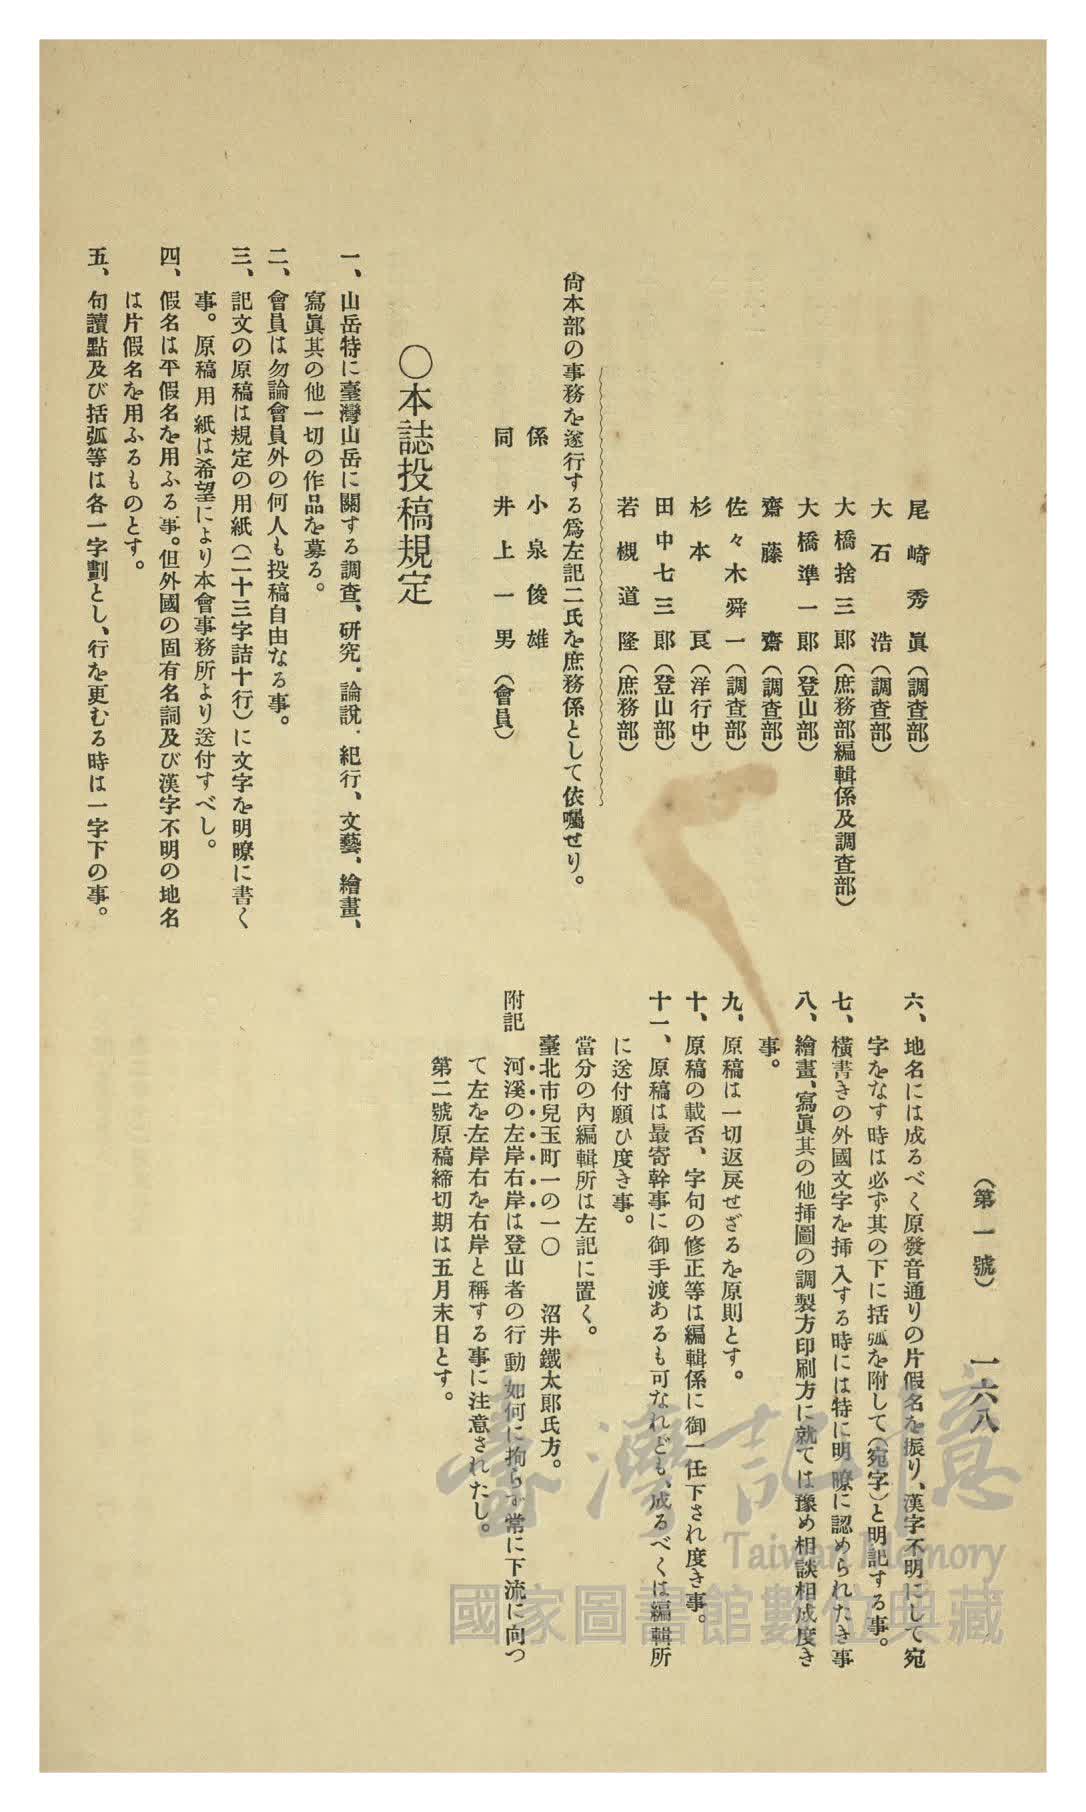 (第一號) 一六八
尾崎秀眞(調査部)
大石浩(調査部)
大橋捨三郞(庶務部編輯係及調査部)
大橋準一郞(登山部)
齋藤齋(調査部)
佐々木舜一(調査部)
杉本良(洋行中)
田中七三郞(登山部)
若槻道隆(庶務部)
尙本部の事務を遂行する爲左記二氏を庶務係として依囑せり。
係 小泉俊雄
同 井上一男(會員)
〇本誌投稿規定
一、山岳特に臺灣山岳に關する調査、硏究、論說、紀行、文藝、繪畫、
寫眞其の他一切の作品を募る。
二、會員は勿論會員外の何人も投稿自由なる事。
三、記文の原稿は規定の用紙(二十三字詰十行)に文字を明瞭に書く
事。原稿用紙は希望により本會事務所より送付すべし。
四、假名は平假名を用ふる事。但外國の固有名詞及び漢字不明の地名
は片假名を用ふるものとす。
五、句讀點及び括弧等は各一字劃とし、行を更むる時は一字下の事。
六、地名には成るべく原發音通りの片假名を振り、漢字不明にして宛
字をなす時は必ず其の下に括弧を附して(宛字)と明記する事。
七、橫書きの外國文字を揷入する時には特に明瞭に認められたき事
八、繪畫、寫眞其の他揷圖の調製方印刷方に就ては豫め相談相成度き
事。
九、原稿は一切返戾せざるを原則とす。
十、原稿の載否、字句の修正等は編輯係に御一任下され度き事。
十一、原稿は最寄幹事に御手渡あるも可なれども、成るべくは編輯所
に送付願ひ度き事。
當分の內編輯所は左記に置く。
臺北市兒玉町一の一〇 沼井鐵太郞氏方。
附記 河溪の左岸右岸は登山者の行動如何に拘らず常に下流に向つ
て左を左岸右を右岸と稱する事に注意されたし。
第二號原稿締切期は五月末日とす。
臺灣記憶
Taiwan Memory
國家圖書館數位典藏